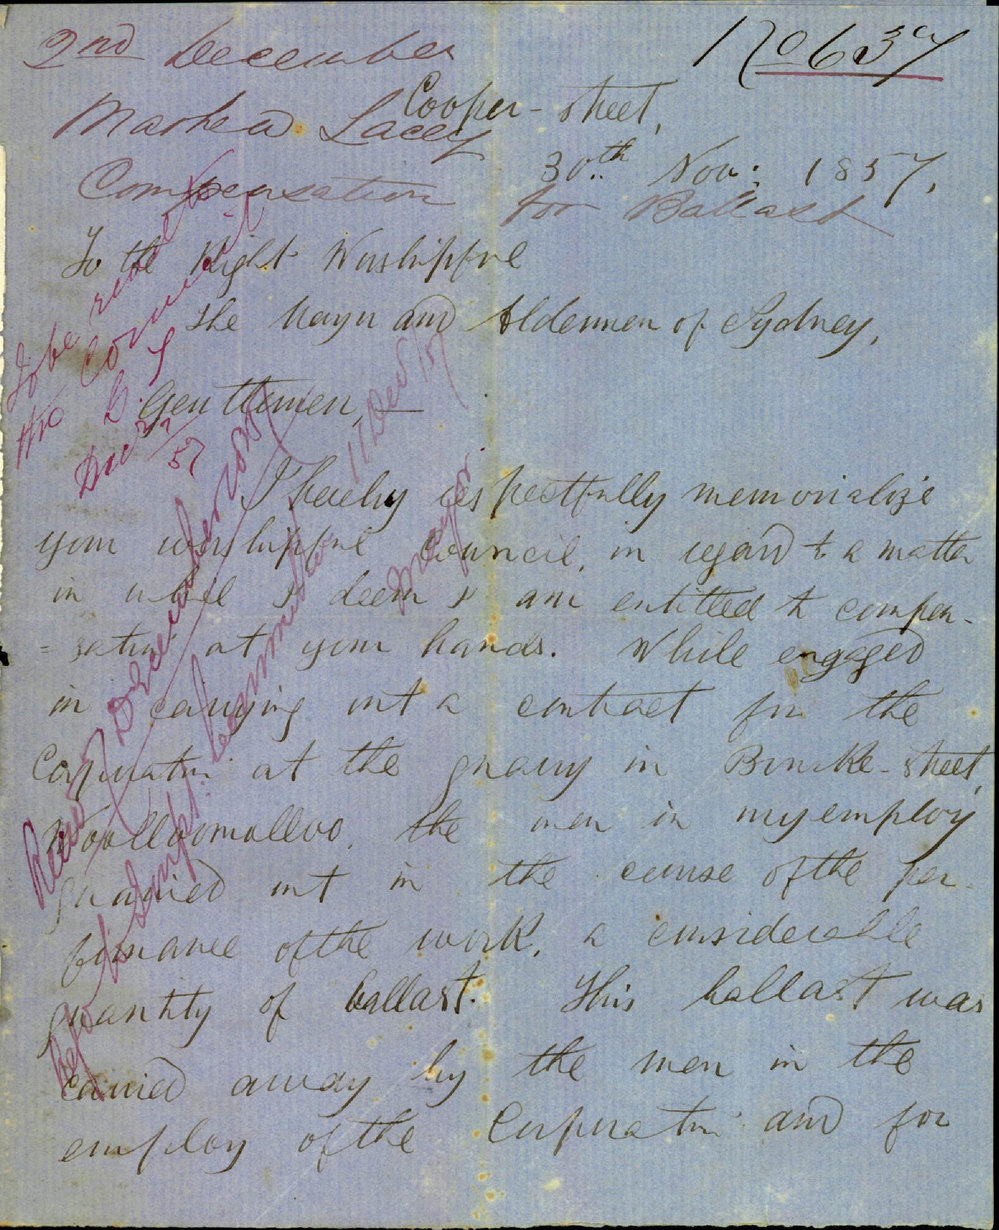 2nd December
No 637
Cooper-street,
Lacey
30th Nov: 1857,
Compensation for Ballast
To the Right Worshipful
The Mayor and Aldermen of Sydney,
Gentlemen,—
I hereby respectfully memorialize
your worshipful Council, in regard to a matter
in which I deem I am entitled to compen-
=sation at your hands. While engaged
in carrying out a contract for the
Corporation at the quarry in Bourke-street,
Woolloomolloo, the men in my employ
quarried out in the course of the per-
formance of the work, a considerable
quantity of ballast. This ballast was
carried away by the men in the
employ of the Corporation and for
To be read
the Council
Dec 2/57
Read 7 December
Before Impt. Committee 11 Dec/57
Mayor